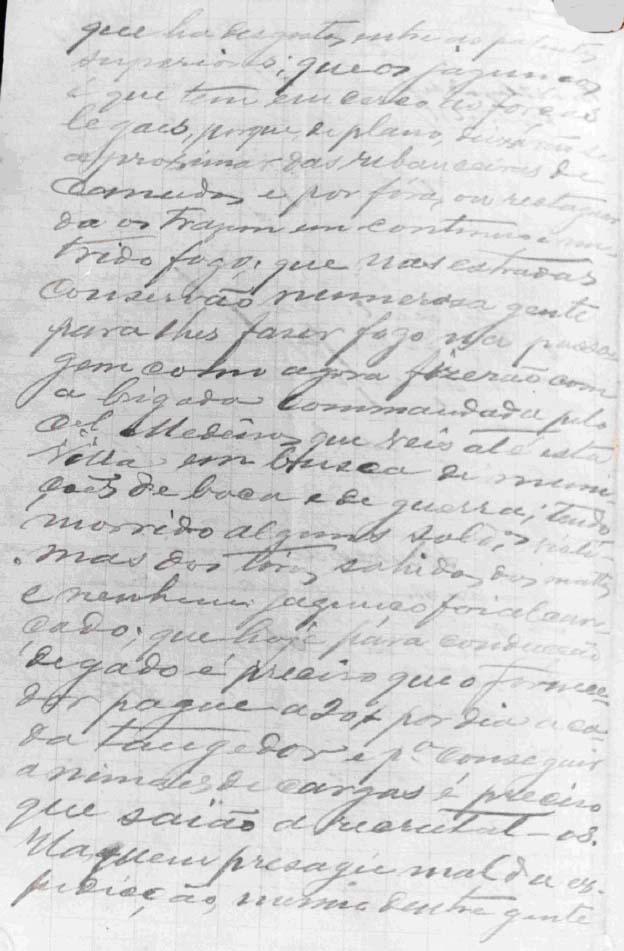 que ha desgostos, entre as patentes
superiores; que os jagunços
é que tem em cerco as forças
legaes, porque, de plano, deixarão se
aproximar das ribanceiras de
Canudos e por fóra, ou rectaguar
da os trazem em continuo e nu
trido fogo; que nas estradas
conservão numerosa gente
para lhes fazer fogo na passa
gem como agora fizerão com
a brigada commandada pelo
Cel. Medeiros, que veis até esta
Villa em busca de muni
ções de boca e de guerra; tendo
morrido alguns sold.os victi
mas dos tiros sahidos dos mattos
e nenhum jagunço foi alcan
çado; que hoje pára conducção
de gado é preciso que o fornece
dor pague a 20$ por dia a ca
da tangedor e p.a conseguir
animaes de cargas é preciso
que saião a recrutal-os.
Ha quem presagie mal da ex
pedicção, mesmo dentre gente